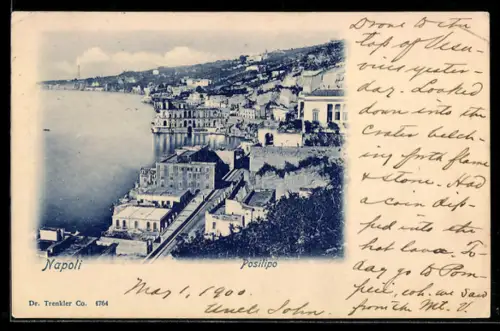 Drove to the
top of Vesu-
vius yester-
day. Looked
down into the
Crater belch-
ing forth flame
& stone. Had
a coin dip-
ped into the
hot lava. To-
day go to Pom-
peii, wh. we saw
from the Mt. V.
Napoli
Posilipo
May 1, 1900.
Uncle John.
Dr. Trenkler Co. 4764